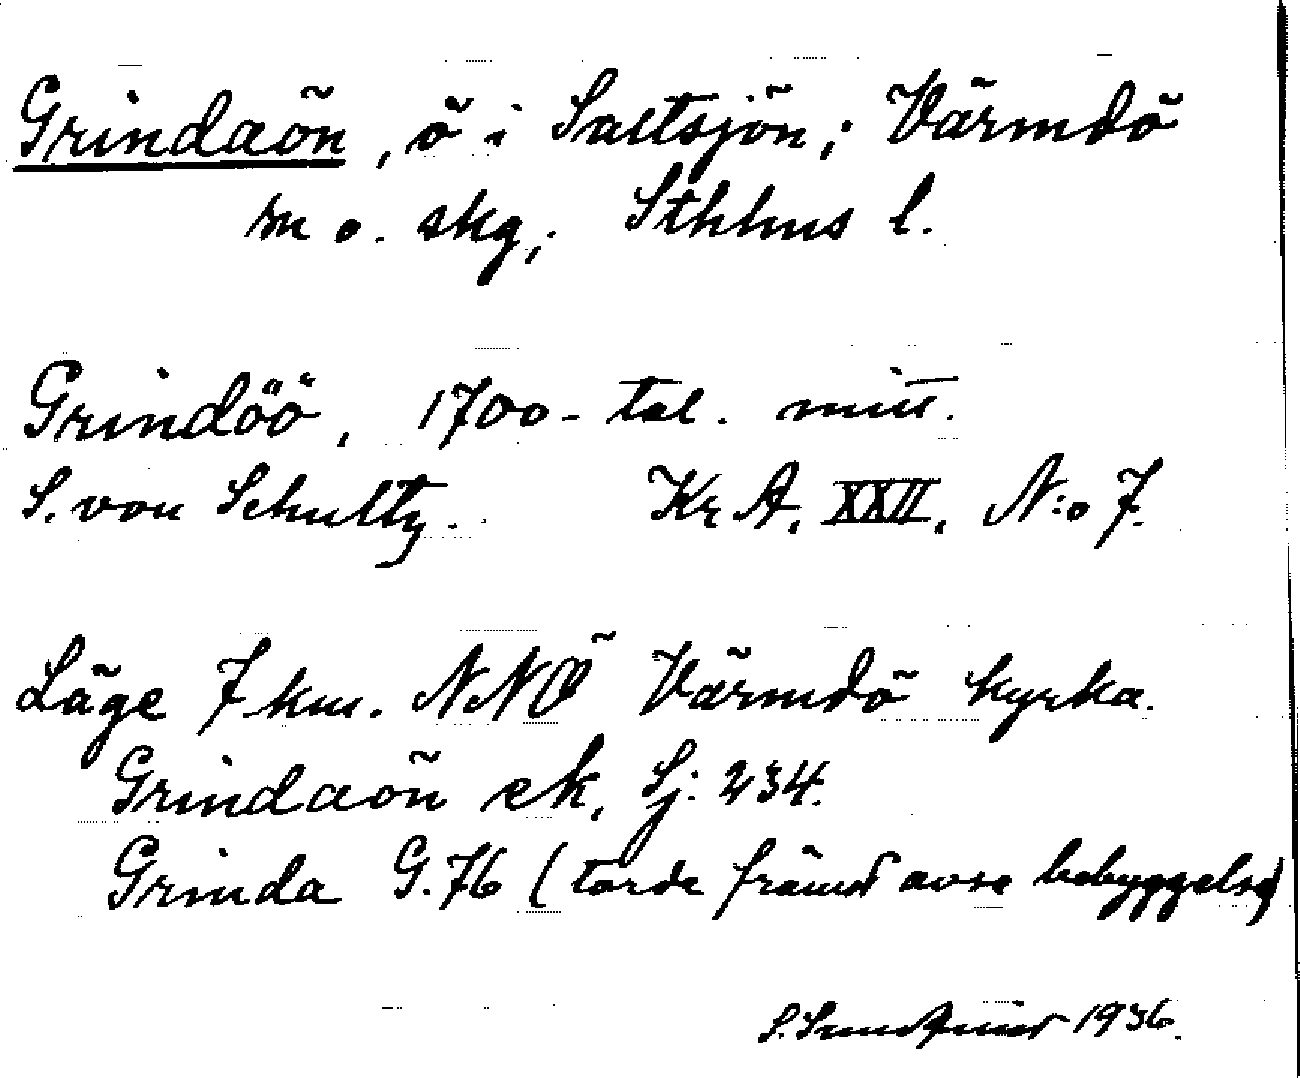 Grindaön, ö i Saltsjön; Värmdö
m o. skg; Sthlms l.
Grindöö, 1700-tal. mitt.
S. von Schultz. Kr A. XXII. N:o 7.
Läge 7 km. NNÖ Värmdö kyrka.
Grindaön ek. Sj: 234.
Grinda G. 76 (torde främst avse bebyggelse)
S. 1936.